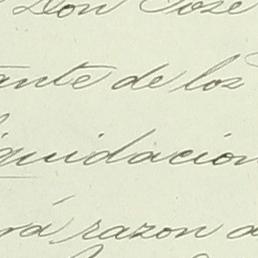 Don José
ante de los
iquidacion
rá razon a